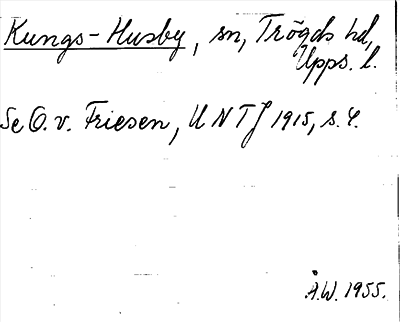 Kungs-Husby, sn, Trögds hd,
Upps. l.
Se O. v. Friesen, UNTJ 1915, s. 4.
Å.W. 1955.